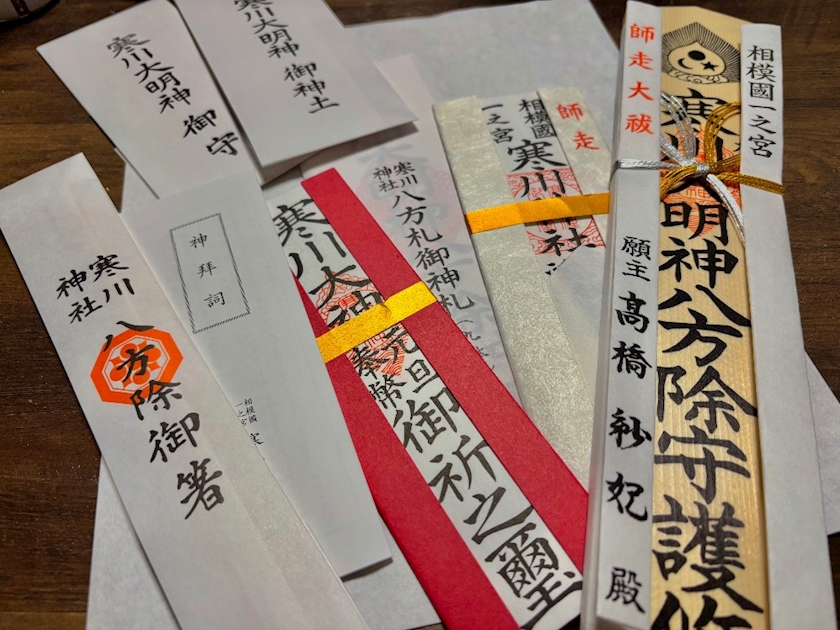 寒川大明神 御守
寒川大明神 御神土
寒川神社
八方除御箸
神拝詞
相模國
一之宮
寒川大神
元旦
奉幣
御祈之璽
寒川
神社
八方札御神札
師走
相模國
一之宮
寒川神社
師走大祓
願主 髙橋 紗妃 殿
寒川大明神八方除守護
相模國一之宮